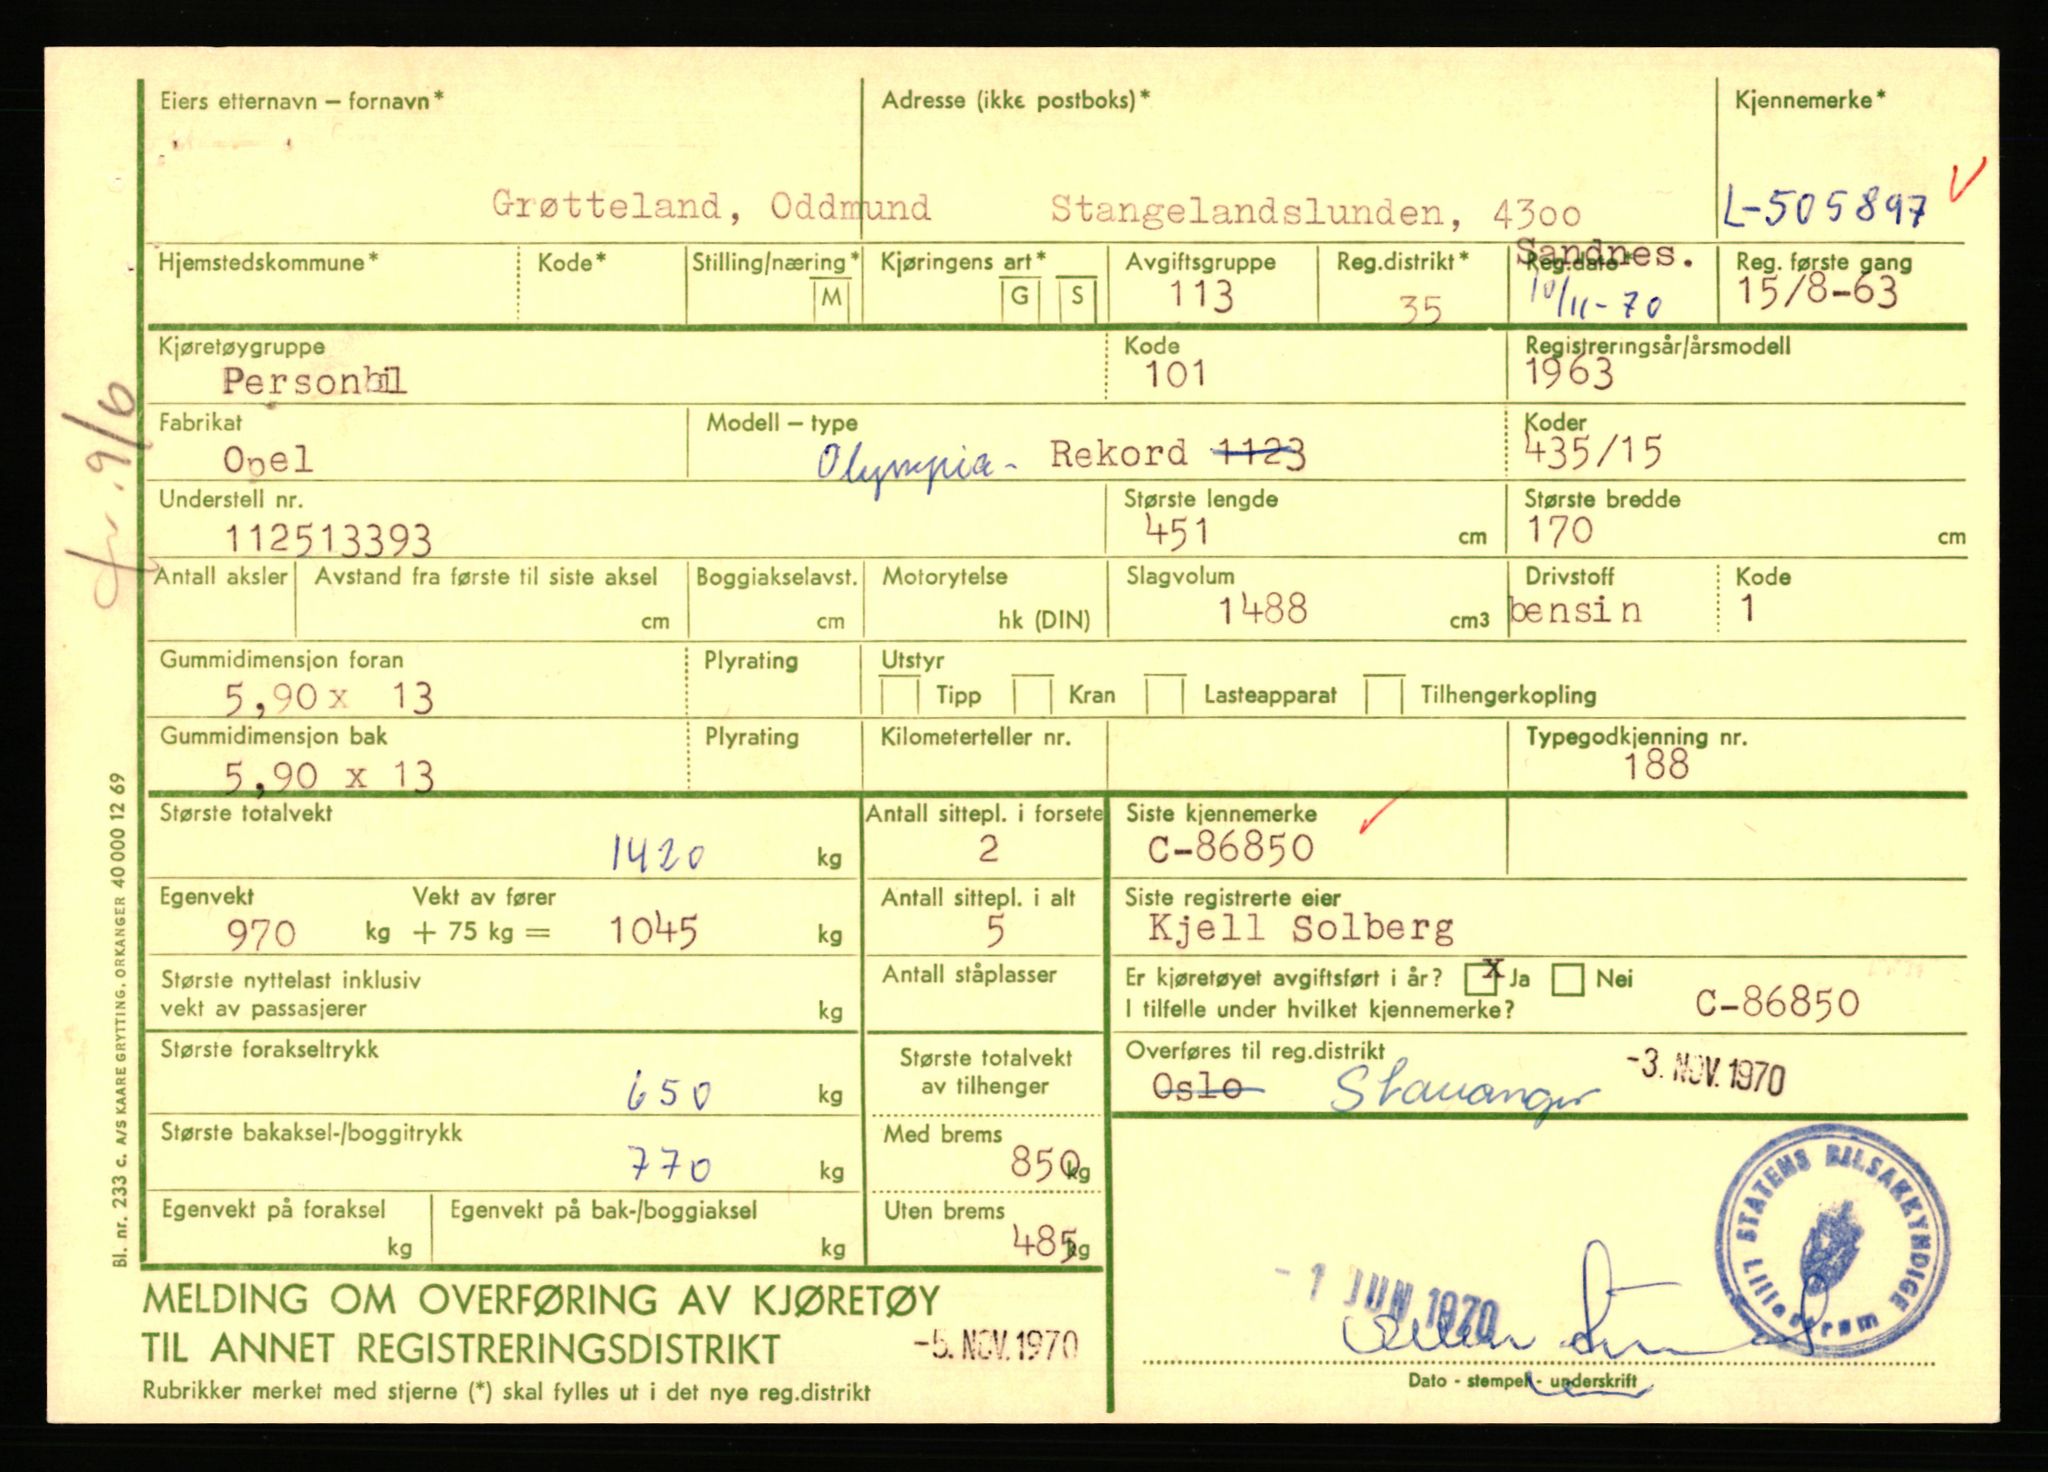 Eiers etternavn – fornavn* Adresse (ikke postboks)* Kjennemerke*
Grøtteland, Oddmund Stangelandslunden, 4300 L-505897
Sandnes.
Hjemstedskommune* Kode* Stilling/næring* M Kjøringens art* G S Avgiftsgruppe Reg.distrikt* Reg.dato* Reg. første gang
113 35 10/11-70 15/8-63
Kjøretøygruppe Kode Registreringsår/årsmodell
Personbil 101 1963
Fabrikat Modell – type Koder
Opel Olympia- Rekord 1123 435/15
Understell nr. Største lengde Største bredde
112513393 451 cm 170 cm
Antall aksler Avstand fra første til siste aksel Boggiakselavst. Motorytelse Slagvolum Drivstoff Kode
cm cm hk (DIN) 1488 cm3 bensin 1
Gummidimensjon foran Plyrating Utstyr
5,90 x 13 Tipp Kran Lasteapparat Tilhengerkopling
Gummidimensjon bak Plyrating Kilometerteller nr. Typegodkjenning nr.
5,90 x 13 188
Største totalvekt Antall sittepl. i forsete Siste kjennemerke
1420 kg 2 C-86850
Egenvekt Vekt av fører Antall sittepl. i alt Siste registrerte eier
970 kg + 75 kg = 1045 kg 5 Kjell Solberg
Største nyttelast inklusiv Antall ståplasser Er kjøretøyet avgiftsført i år? x Ja Nei
vekt av passasjerer kg I tilfelle under hvilket kjennemerke? C-86850
Største forakseltrykk Største totalvekt Overføres til reg.distrikt
650 kg av tilhenger Oslo Stavanger -3. NOV. 1970
Største bakaksel-/boggitrykk Med brems
770 kg 850 kg
Egenvekt på foraksel Egenvekt på bak-/boggiaksel Uten brems
kg kg 485 kg
STATENS BILSAKKYNDIGE
Lillestrøm
MELDING OM OVERFØRING AV KJØRETØY
-1 JUN 1970
TIL ANNET REGISTRERINGSDISTRIKT -5. NOV. 1970
Rubrikker merket med stjerne (*) skal fylles ut i det nye reg.distrikt
Dato - stempel - underskrift
Bl. nr. 233 c. A/S KAARE GRYTTING, ORKANGER 40 000 12 69
9/6